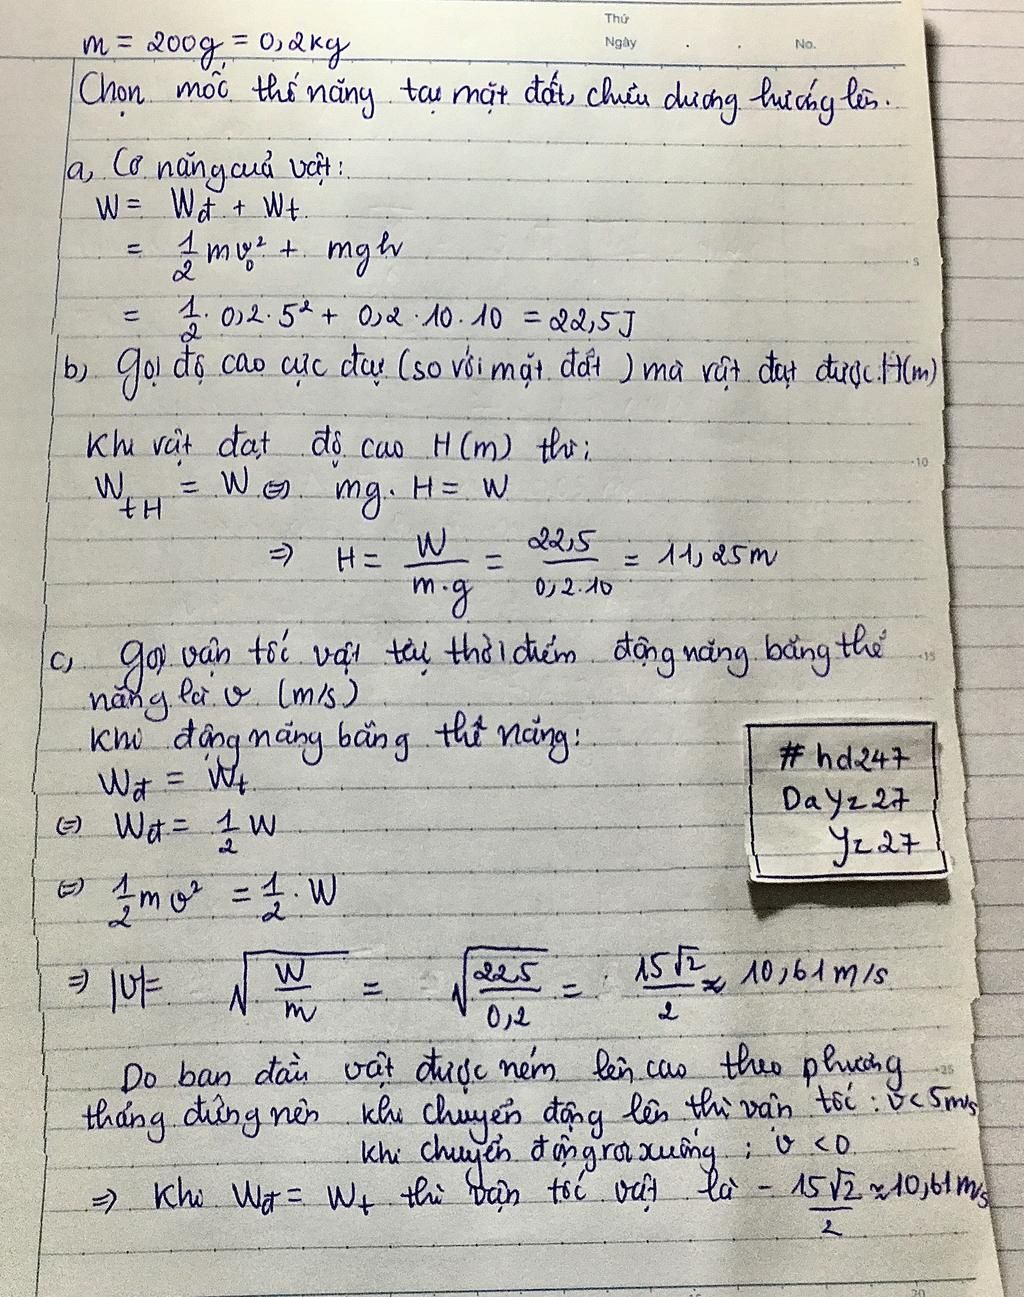 Thứ
Ngày . . No.
m = 200g = 0,2kg
Chọn mốc thế năng tại mặt đất, chiều dương hướng lên.
a, Cơ năng của vật:
W = Wđ + Wt
= 1/2 mv₀² + mgh
= 1/2 . 0,2 . 5² + 0,2 . 10 . 10 = 22,5J
b) Gọi độ cao cực đại (so với mặt đất) mà vật đạt được H(m)
Khi vật đạt độ cao H(m) thì:
WtH = W ⇔ mg. H = W
⇒ H = W/m.g = 22,5/0,2.10 = 11,25m
c, Gọi vận tốc vật tại thời điểm động năng bằng thế
năng là v (m/s)
Khi động năng bằng thế năng:
Wđ = Wt
⇔ Wđ = 1/2 W
⇔ 1/2 mv² = 1/2 . W
⇒ |v| = √(W/m) = √(22,5/0,2) = 15√2/2 ≈ 10,61m/s
Do ban đầu vật được ném lên cao theo phương
thẳng đứng nên khi chuyển động lên thì vận tốc : v < 5m/s
khi chuyển động rơi xuống ; v < 0
⇒ Khi Wđ = Wt thì vận tốc vật là - 15√2/2 ≈ 10,61m/s
# hd247
DaYz27
Yz27
5
10
15
25